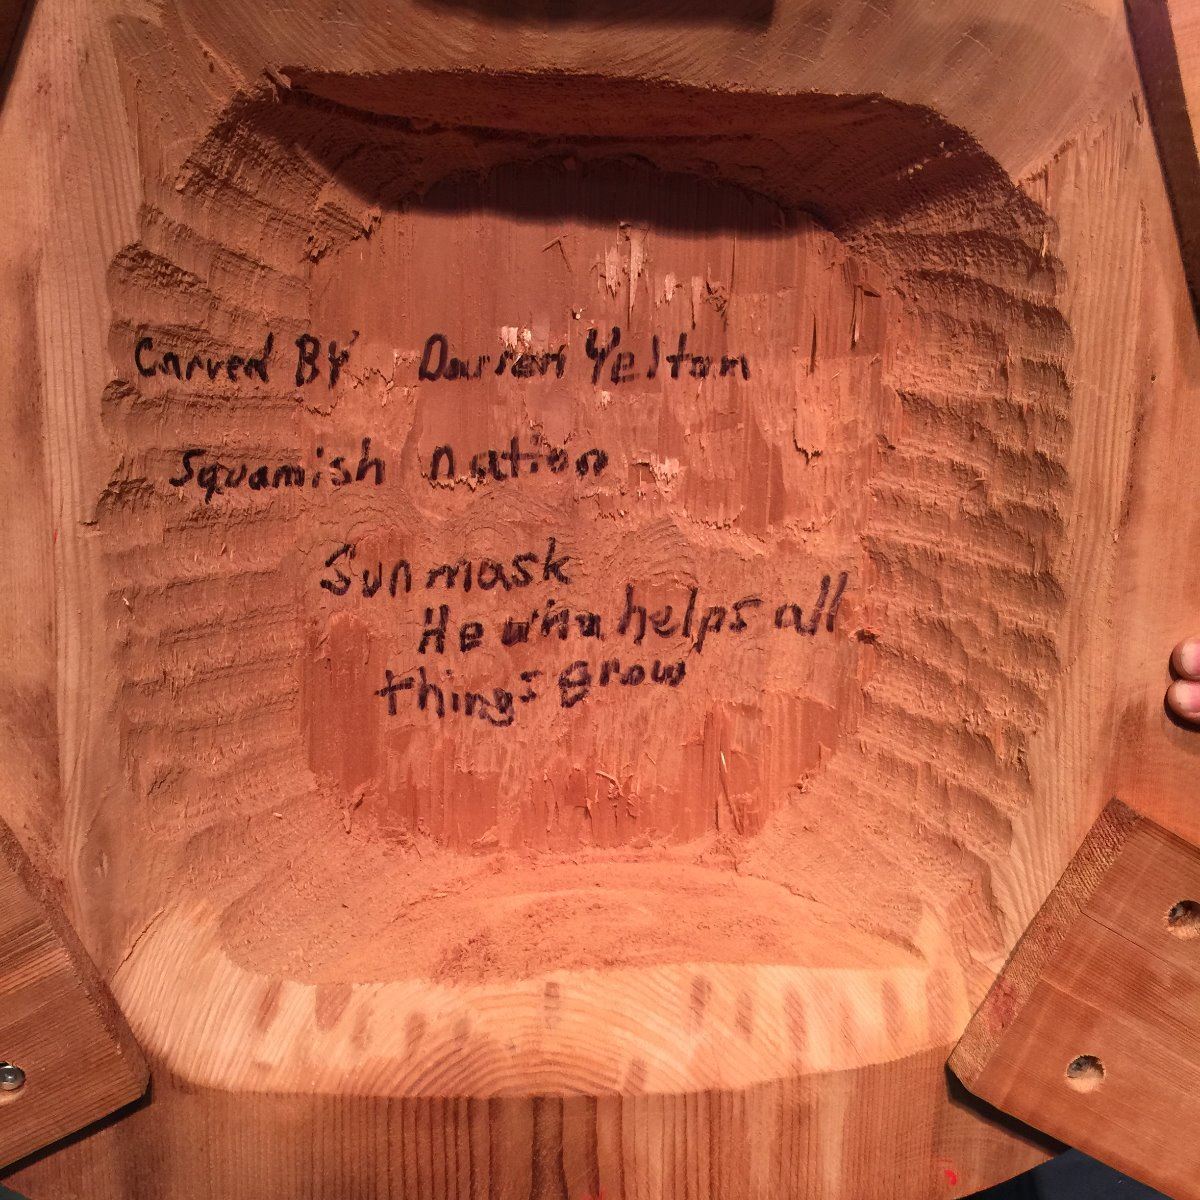 Carved BY Darren Yeltom
Squamish nation
Sun mask
He who helps all
things Grow